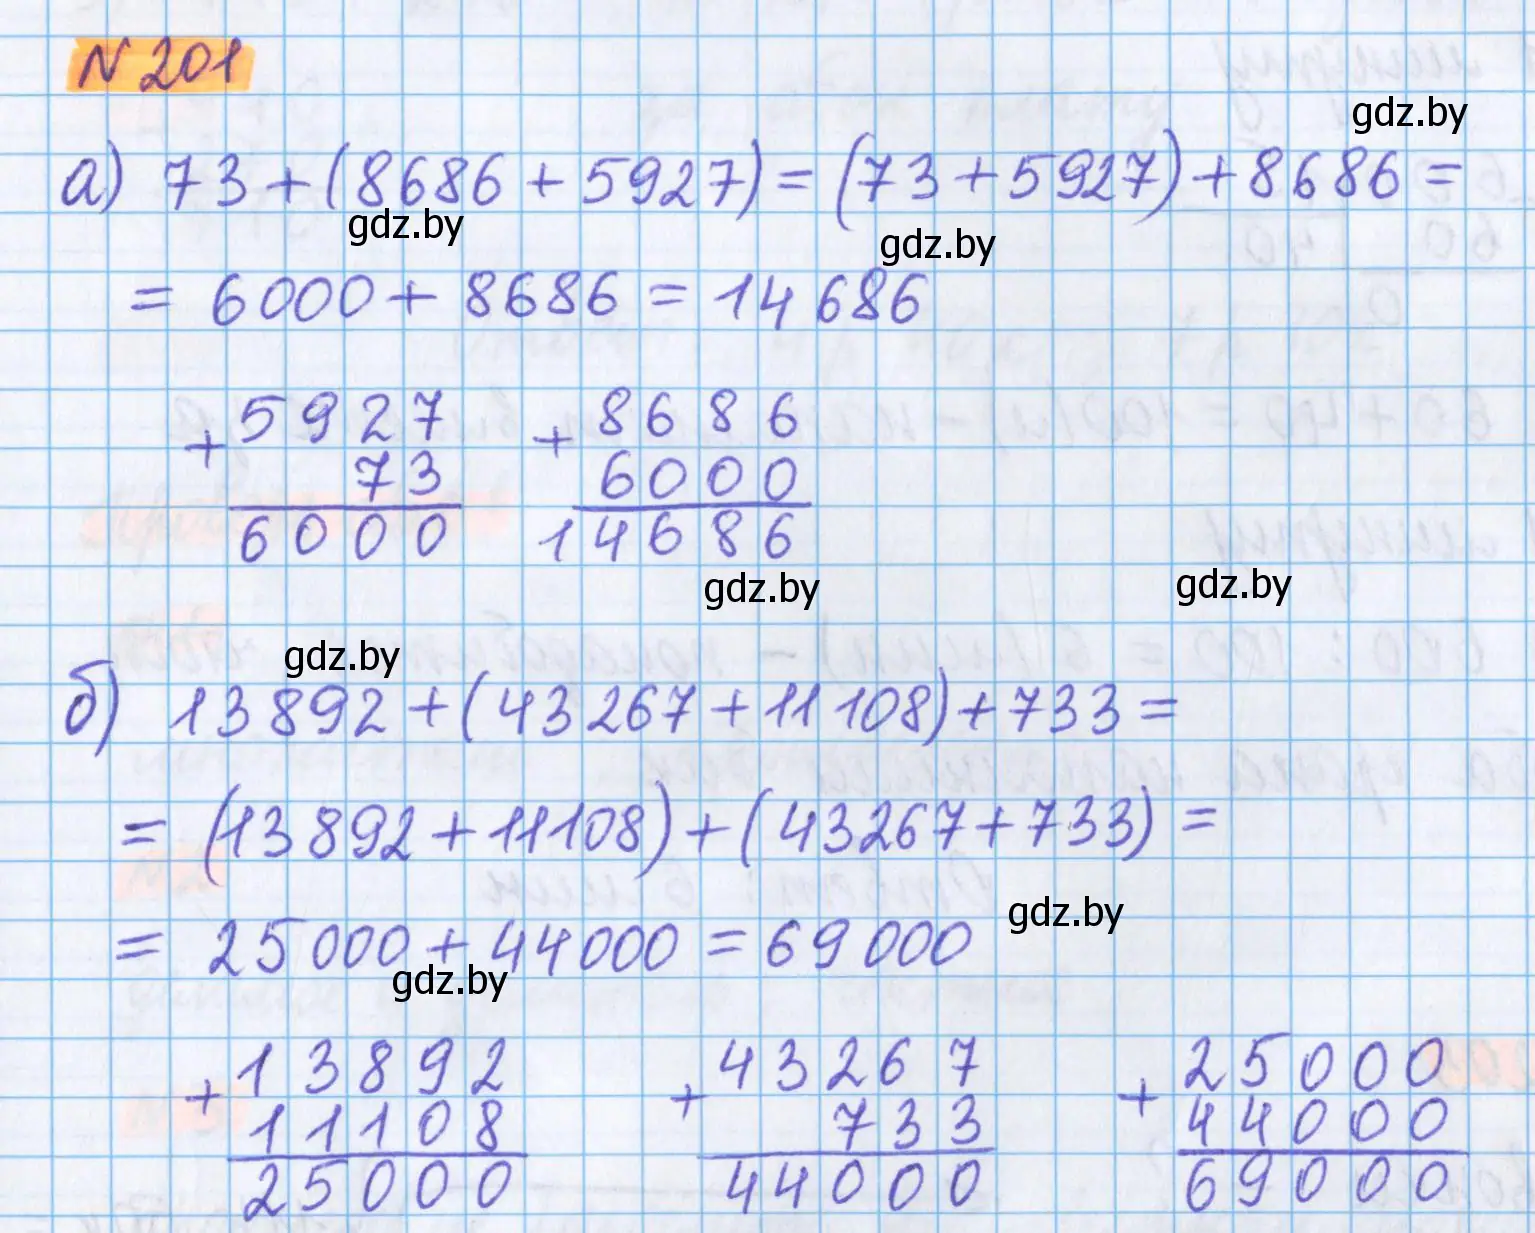 № 201
gdz.by
а) 73 + (8686 + 5927) = (73 + 5927) + 8686 =
gdz.by
gdz.by
= 6000 + 8686 = 14 686
+ 5927 + 8686
73 6000
6000 14686
gdz.by
gdz.by
gdz.by
б) 13 892 + (43 267 + 11 108) + 733 =
= (13 892 + 11108) + (43267 + 733) =
gdz.by
= 25 000 + 44 000 = 69 000
gdz.by
+ 13892 + 43267 + 25000
11108 733 44000
25000 44000 69000